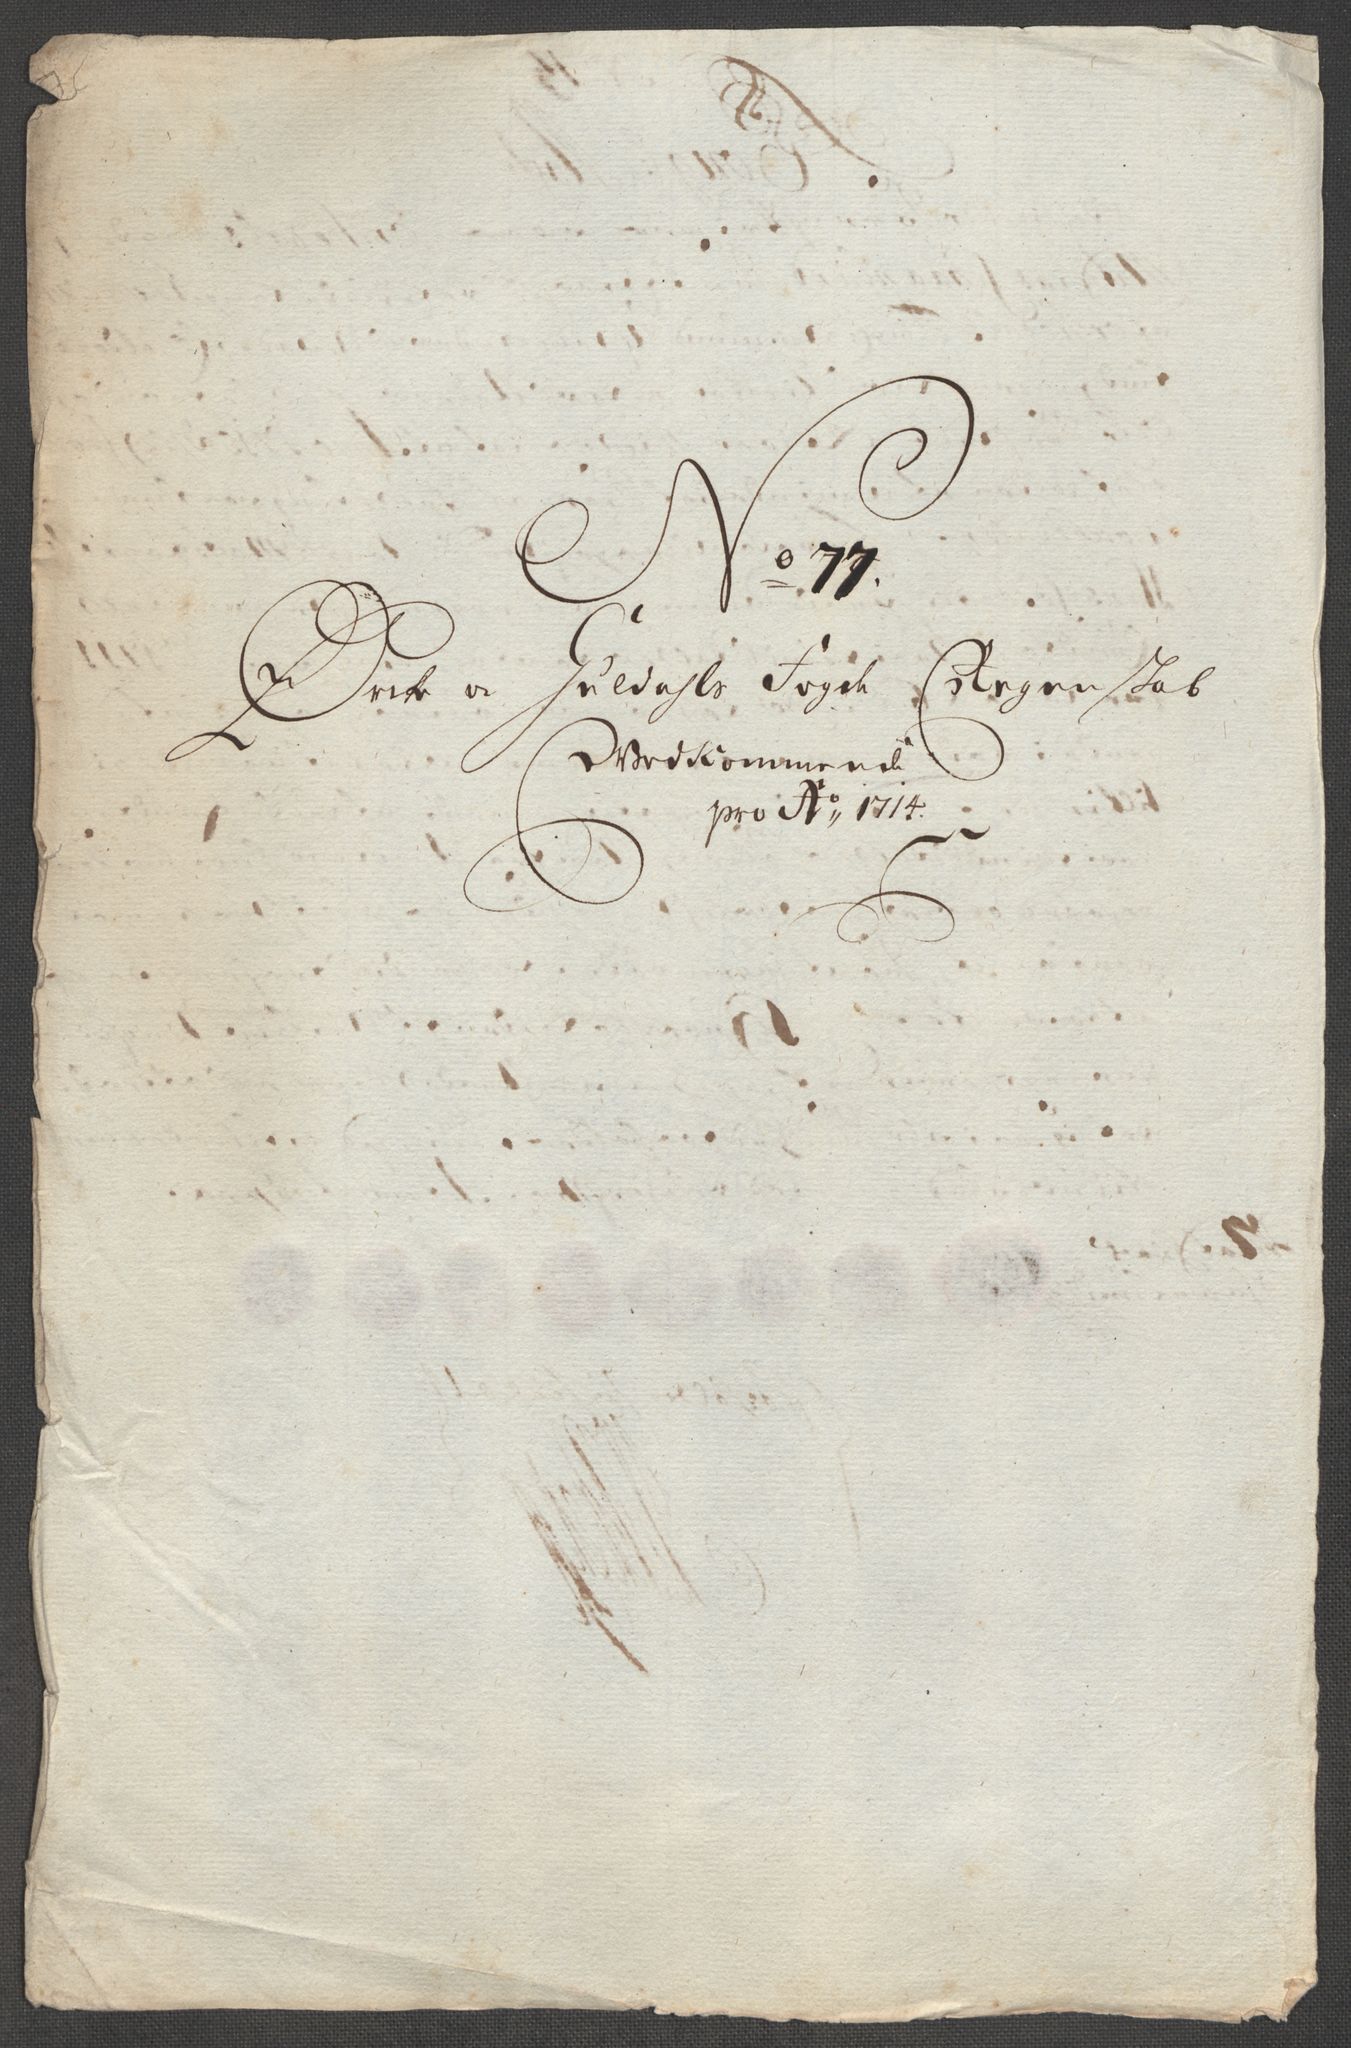 No 77.
Orke oc Guldahls Fogde Regenskab
Vedkommende
pro Ao 1714.